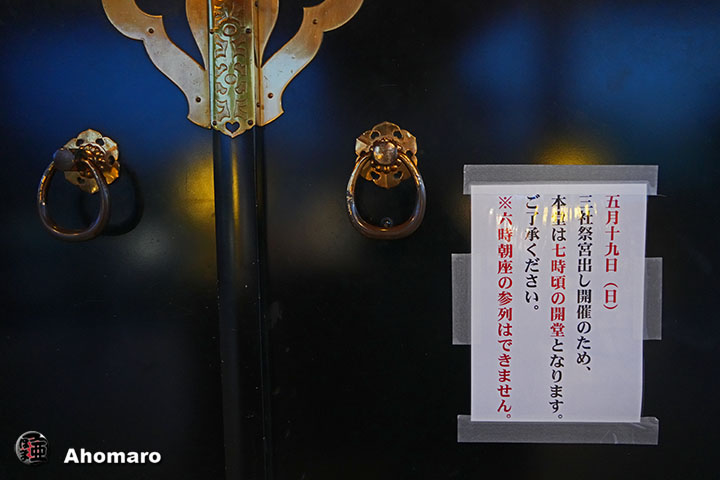 五月十九日(日)
三社祭宮出し開催のため、
本堂は七時頃の開堂となります。
ご了承ください。
※六時朝座の参列はできません。
Ahomaro